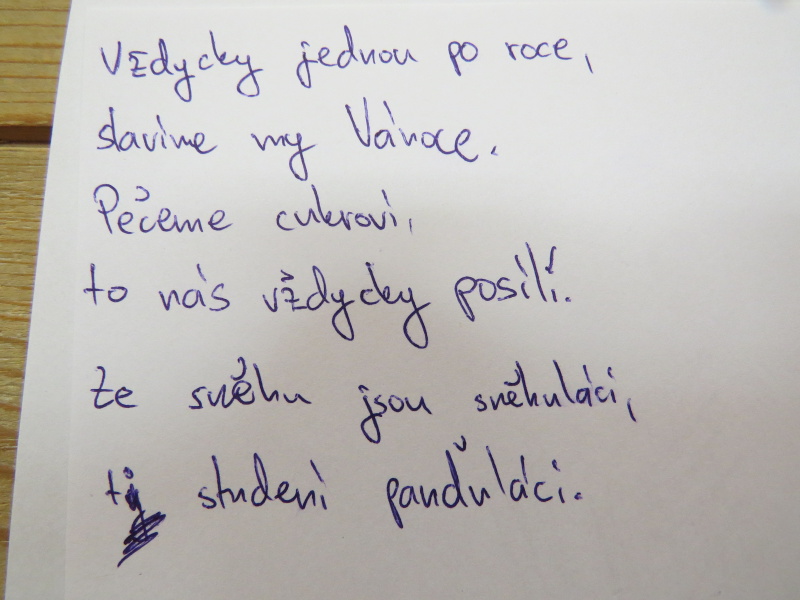 Vždycky jednou po roce,
slavíme my Vánoce.
Pečeme cukroví,
to nás vždycky posílí.
Ze sněhu jsou sněhuláci,
ti studení panďuláci.